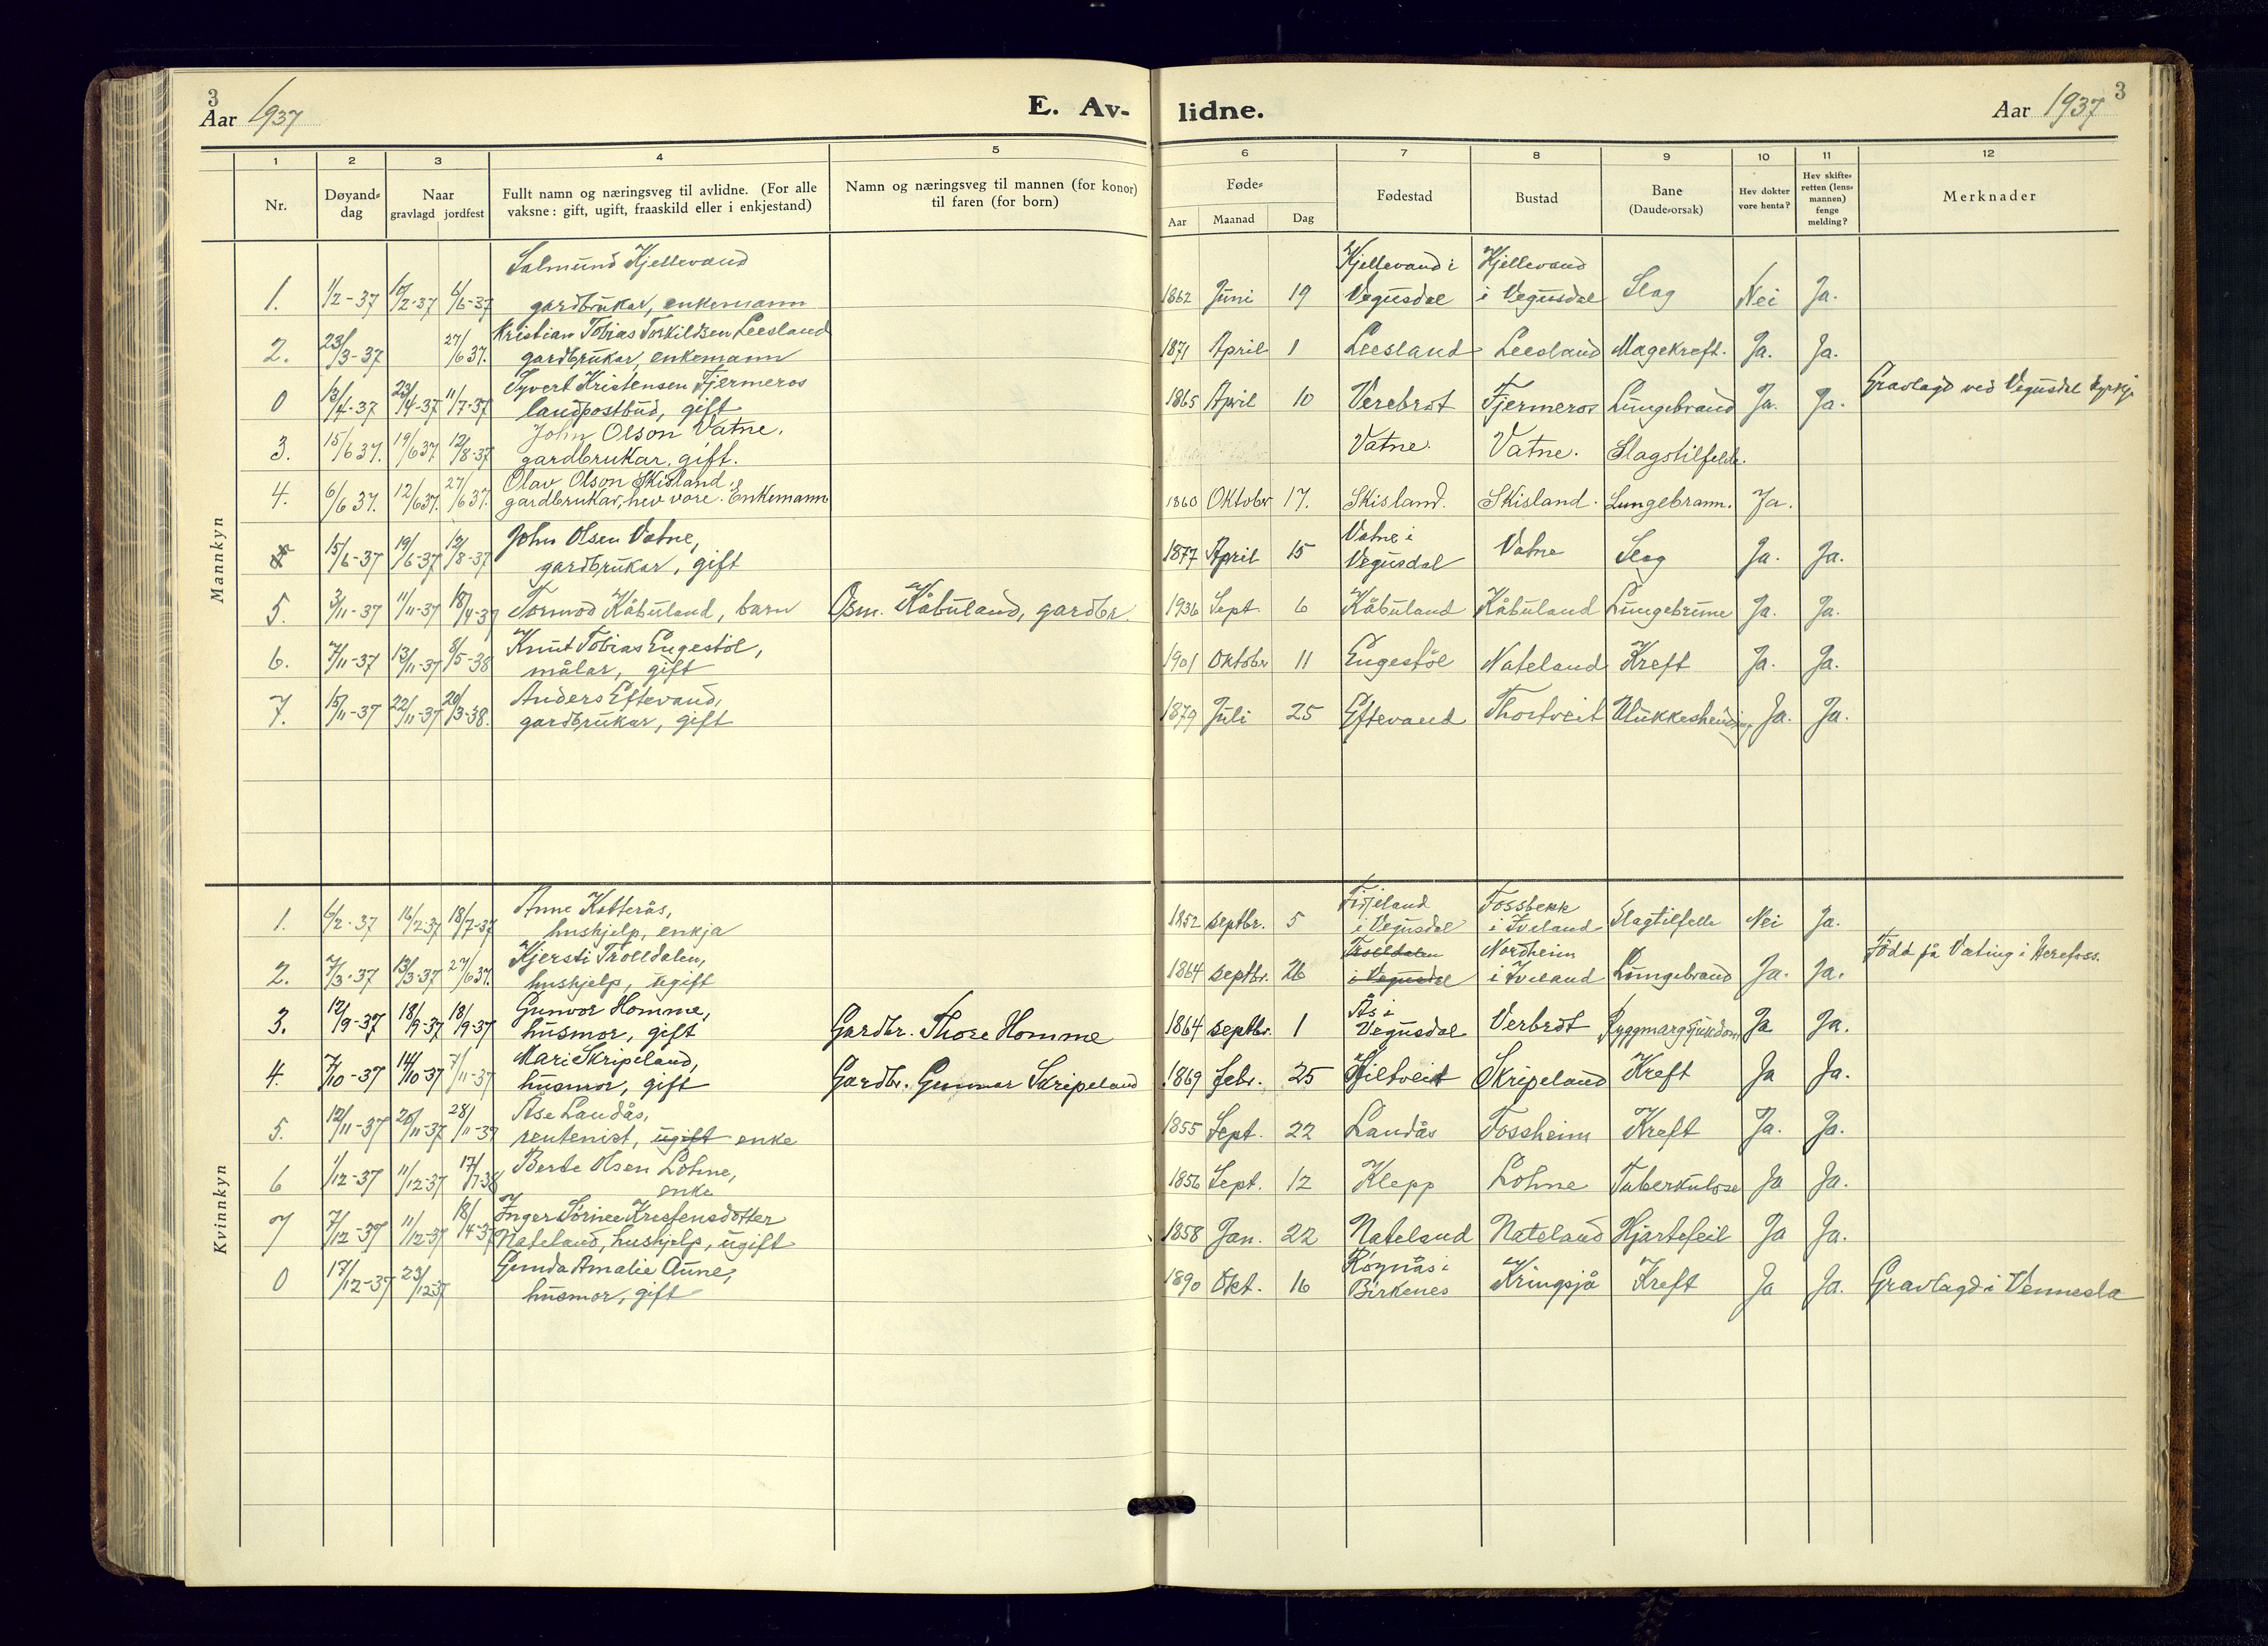 3
Aar 1937
E. Av-
lidne.
Aar 1937
3
1 2 3 4 5 6 7 8 9 10 11 12
Nr.
Døyand-
dag
Naar
gravlagd jordfest
Fullt namn og næringsveg til avlidne. (For alle
vaksne: gift, ugift, fraaskild eller i enkjestand)
Namn og næringsveg til mannen (for konor)
til faren (for born)
Føde-
Aar Maanad Dag
Fødestad
Bustad
Bane
(Daude-orsak)
Hev dokter
vore henta?
Hev skifte-
retten (lens-
mannen)
fenge
melding?
Merknader
Mannkyn
Salmund Kjellevand Kjellevand i Kjellevand
1. 1/2-37 10/2-37 6/6-37 gardbrukar, enkemann 1862 Juni 19 Vegusdal i Vegusdal Slag Nei Ja.
Kristian Tobias Torkildsen Leesland
2. 23/3-37 27/6 37. gardbrukar, enkemann 1871 April 1 Leesland Leesland Magekreft. Ja. Ja.
Syvert Kristensen Fjermeros Gravlagd ved Vegusdal kyrkje
0 13/4-37 23/4-37 11/7-37 landpostbud, gift 1865 April 10 Verebrøt Fjermeros Lungebrand Ja. Ja.
John Olson Vatne.
3. 15/6 37. 19/6 37. 12/8-37 gardbrukar, gift. Vatne. Vatne. Slagstilfelde.
Olav Olson Skisland,
4. 6/6 37. 12/6 37. 27/6 37. gardbrukar, hev vore. Enkemann 1860 Oktober 17. Skisland. Skisland. Lungebrann. Ja.
John Olsen Vatne, Vatne i
15/6-37 19/6-37 12/8-37 gardbrukar, gift 1877 April 15 Vegusdal Vatne Slag Ja. Ja.
5. 3/11-37 11/11-37 18/4-37 Tormod Kåbuland, barn Osm. Kåbuland, gardbr. 1936 Sept. 6 Kåbuland Kåbuland Lungebrune Ja. Ja.
Knut Tobias Engestöl,
6. 7/11-37 13/11-37 8/5-38 målar, gift 1901 Oktober 11 Engestöl Nateland Kreft Ja. Ja.
Anders Eftevand,
7. 15/11-37 22/11-37 20/3-38. gardbrukar, gift 1879 Juli 25 Eftevand Thortveit Ulukkeshending Ja. Ja.
Kvinnkyn
Anne Katterås, Fidjeland Fossbekk
1. 6/2-37 16/2 37 18/7-37 hushjelp, enkja 1852 septbr. 5 i Vegusdal i Iveland Slagtilfelle Nei Ja.
Kjersti Trolldalen, Trolldalen Nordheim Född på Vating i Herefoss.
2. 7/3-37 13/3-37 27/6 37. hushjelp, ugift 1864 septbr. 26 i Vegusdal i Iveland Lungebrand Ja. Ja.
Gunvor Homme, Ås i
3. 12/9-37 18/9-37 18/9-37 husmor, gift Gardbr. Thore Homme 1864 septbr. 1 Vegusdal Verbrøt Ryggmargsjukdom Ja Ja.
Mari Skripeland,
4. 7/10-37 14/10-37 7/11-37 husmor, gift Gardbr. Gunnar Skripeland 1869 febr. 25 Hiltveit Skripeland Kreft Ja Ja.
Åse Landås,
5. 12/11-37 20/11-37 28/11-37 rentenist, ugift enke 1855 Sept. 22 Landås Fossheim Kreft Ja. Ja.
Berte Olsen Lohne,
6 1/12-37 11/12-37 17/7-38 enke 1856 Sept. 12 Klepp Lohne Tuberkulose Ja Ja.
Inger Sørine Kristensdotter
7 7/12-37 11/12-37 18/4-37 Nateland, hushjelp, ugift 1858 Jan. 22 Nateland Nateland Hjartefeil Ja Ja.
Gunda Amalie Aune, Rognås i
0 17/12-37 23/12-37 husmor, gift 1890 Okt. 16 Birkenes Kringsjå Kreft Ja Ja. Gravlagd i Vennesla